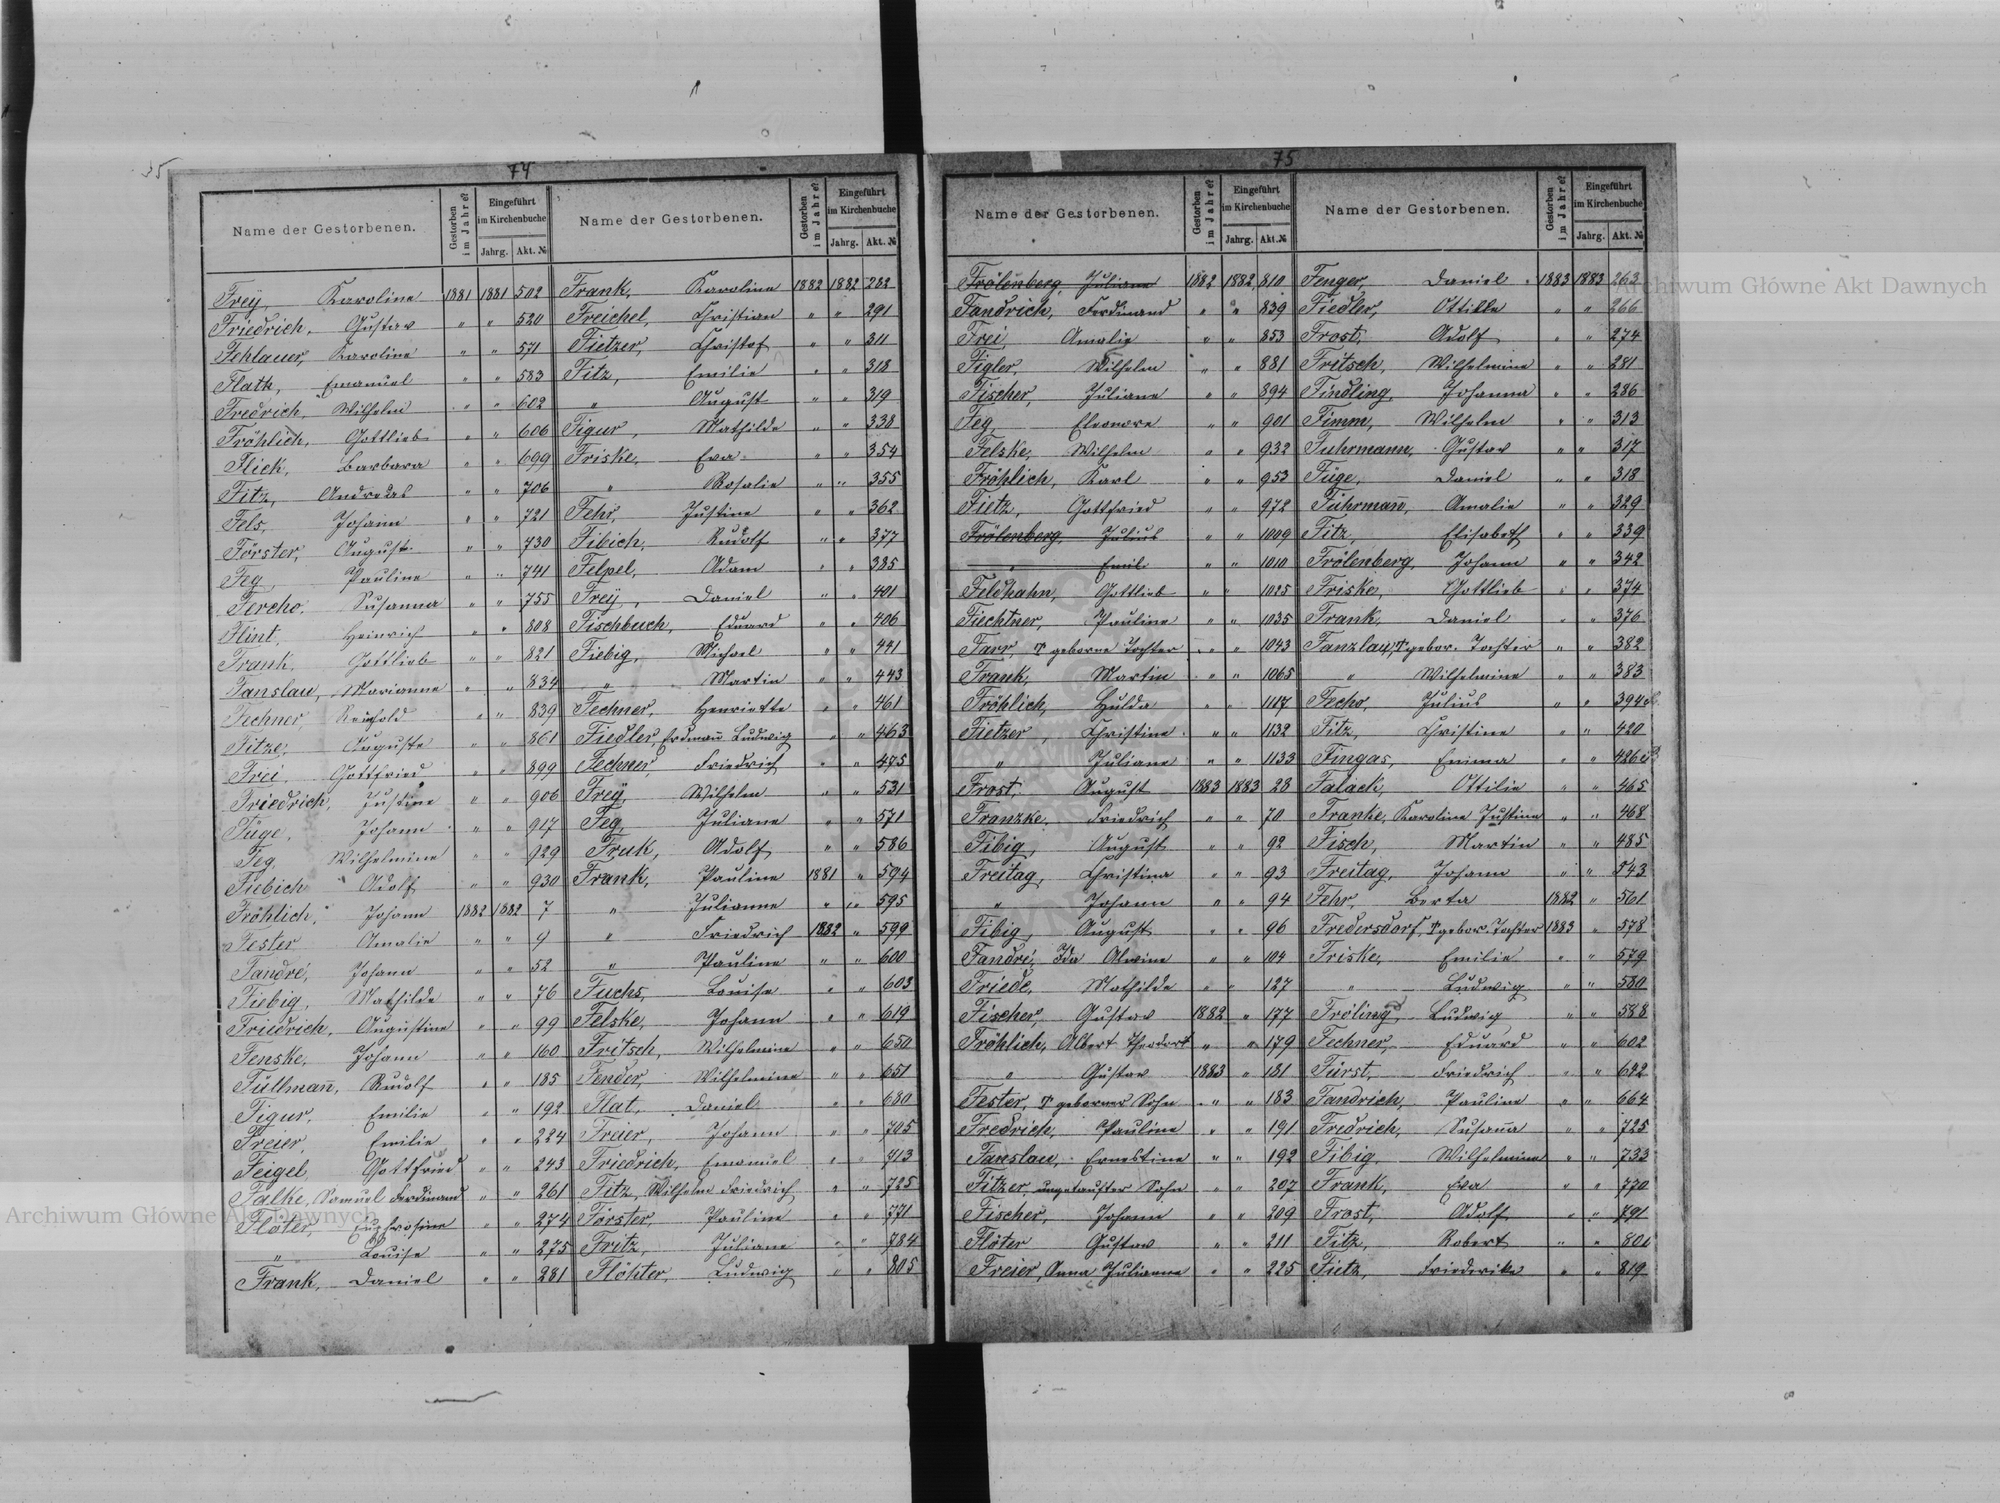 35
74
Name der Gestorbenen.
Gestorben im Jahre?
Eingeführt im Kirchenbuche
Jahrg.
Akt. №
Frey, Karoline 1881 1881 502
Friedrich, Gustav " " 520
Fehlauer, Karoline " " 571
Flath, Emanuel " " 583
Fredrich, Wilhelm " " 602
Fröhlich, Gottlieb " " 606
Flick, Barbara " " 699
Fitz, Andreas " " 706
Fels, Johann " " 721
Förster, August " " 730
Feg, Pauline " " 741
Fercho, Susanna " " 755
Flint, Heinrich " " 808
Frank, Gottlieb " " 821
Fanslau, Marianne " " 834
Fechner, Reinhold " " 839
Fitze, Auguste " " 861
Frei, Gottfried " " 899
Friedrich, Justine " " 906
Füge, Johann " " 917
Feg, Wilhelmine " " 929
Fiebich Adolf " " 930
Fröhlich, Johann 1882 1882 7
Fester Amalie " " 9
Fandré, Johann " " 52
Fiebig, Mathilde " " 76
Friedrich, Augustine " " 99
Fenske, Johann " " 160
Füllmañ, Rudolf " " 185
Figur, Emilie " " 192
Freier, Emilie " " 224
Feigel Gottfried " " 243
Falke, Samuel Ferdinand " " 261
Flöter, Euphrosine " " 274
" Louise " " 275
Frank, Daniel " " 281
Name der Gestorbenen.
Gestorben im Jahre?
Eingeführt im Kirchenbuche
Jahrg.
Akt. №
Frank, Karoline 1882 1882 282
Freichel, Christian " " 291
Fietzer, Christof " " 311
Fitz, Emilie " " 318
" August " " 319
Figur, Mathilde " " 338
Friske, Eva " " 354
" Rosalie " " 355
Fehr, Justine " " 362
Fibich, Rudolf " " 377
Felpel, Adam " " 385
Frey, Daniel " " 401
Fischbuch, Eduard " " 406
Fiebig, Michael " " 441
" Martin " " 443
Fechner, Henriette " " 461
Fiedler, Erdmañ Ludwig " " 463
Fechner, Friedrich " " 475
Frey, Wilhelm " " 531
Feg, Juliane " " 571
Fruk, Adolf " " 586
Frank, Pauline 1881 " 594
" Julianne " " 595
" Friedrich 1882 " 599
" Pauline " " 600
Fuchs, Louise " " 603
Felske, Johann " " 619
Fritsch, Wilhelmine " " 650
Fender, Wilhelmine " " 651
Flat, Daniel " " 680
Freier, Johann " " 705
Friedrich, Emanuel " " 713
Fitz, Wilhelm Friedrich " " 725
Förster, Pauline " " 771
Fritz, Juliane " " 784
Flöhter, Ludwig " " 805
75
Name der Gestorbenen.
Gestorben im Jahre?
Eingeführt im Kirchenbuche
Jahrg.
Akt. №
Frölenberg, Juliane 1882 1882 810
Fandrich, Ferdinand " " 839
Frei, Amalie " " 853
Figler, Wilhelm " " 881
Fischer, Juliane " " 894
Feg, Eleonore " " 901
Felske, Wilhelm " " 932
Fröhlich, Karl " " 953
Fietz, Gottfried " " 972
Frölenberg, Julius " " 1009
" Emil " " 1010
Feldhahn, Gottlieb " " 1025
Fiechtner, Pauline " " 1035
Farr, T geborne Tochter " " 1043
Frank, Martin " " 1065
Fröhlich, Hulda " " 1117
Fietzer, Christine " " 1132
" Juliane " " 1133
Frost, August 1883 1883 28
Franzke, Friedrich " " 70
Fibig, August " " 92
Freitag, Christina " " 93
" Johann " " 94
Fibig, August " " 96
Fandré, Ida Alwine " " 104
Friede, Mathilde " " 127
Fischer, Gustav 1882 " 177
Fröhlich, Albert Theodor " " 179
" Gustav 1883 " 181
Fester, T geborner Sohn " " 183
Fredrich, Pauline " " 191
Fanslau, Ernestine " " 192
Fitzer, ungetaufter Sohn " " 207
Fischer, Johann " " 209
Flöter Gustav " " 211
Freier, Anna Julianna " " 225
Name der Gestorbenen.
Gestorben im Jahre?
Eingeführt im Kirchenbuche
Jahrg.
Akt. №
Fenger, Daniel 1883 1883 263
Fiedler, Ottilie " " 266
Frost, Adolf " " 274
Fritsch, Wilhelmine " " 281
Findling, Johanna " " 286
Fimm, Wilhelm " " 313
Fuhrmann, Gustav " " 317
Füge, Daniel " " 318
Fuhrmañ, Amalie " " 329
Fitz, Elisabeth " " 339
Frölenberg, Johann " " 342
Friske, Gottlieb " " 374
Frank, Daniel " " 376
Fanzlau, T gebor. Tochter " " 382
" Wilhelmine " " 383
Fecho, Julius " " 394
Fitz, Christine " " 420
Fingas, Emma " " 426
Falack, Ottilie " " 465
Franke, Karoline Justine " " 468
Fisch, Martin " " 485
Freitag, Johann " " 543
Fehr Berta 1882 " 561
Fredersdorf, T gebor. Tochter 1883 " 578
Friske, Emilie " " 579
" Ludwig " " 580
Fröling, Ludwig " " 588
Fechner, Eduard " " 602
Fürst, Friedrich " " 622
Fandrich, Pauline " " 664
Fredrich, Susaña " " 725
Fibig, Wilhelmine " " 733
Frank, Eva " " 770
Frost, Adolf " " 791
Fitz, Robert " " 801
Fietz, Friederike " " 819
Archiwum Główne Akt Dawnych
Archiwum Główne Akt Dawnych